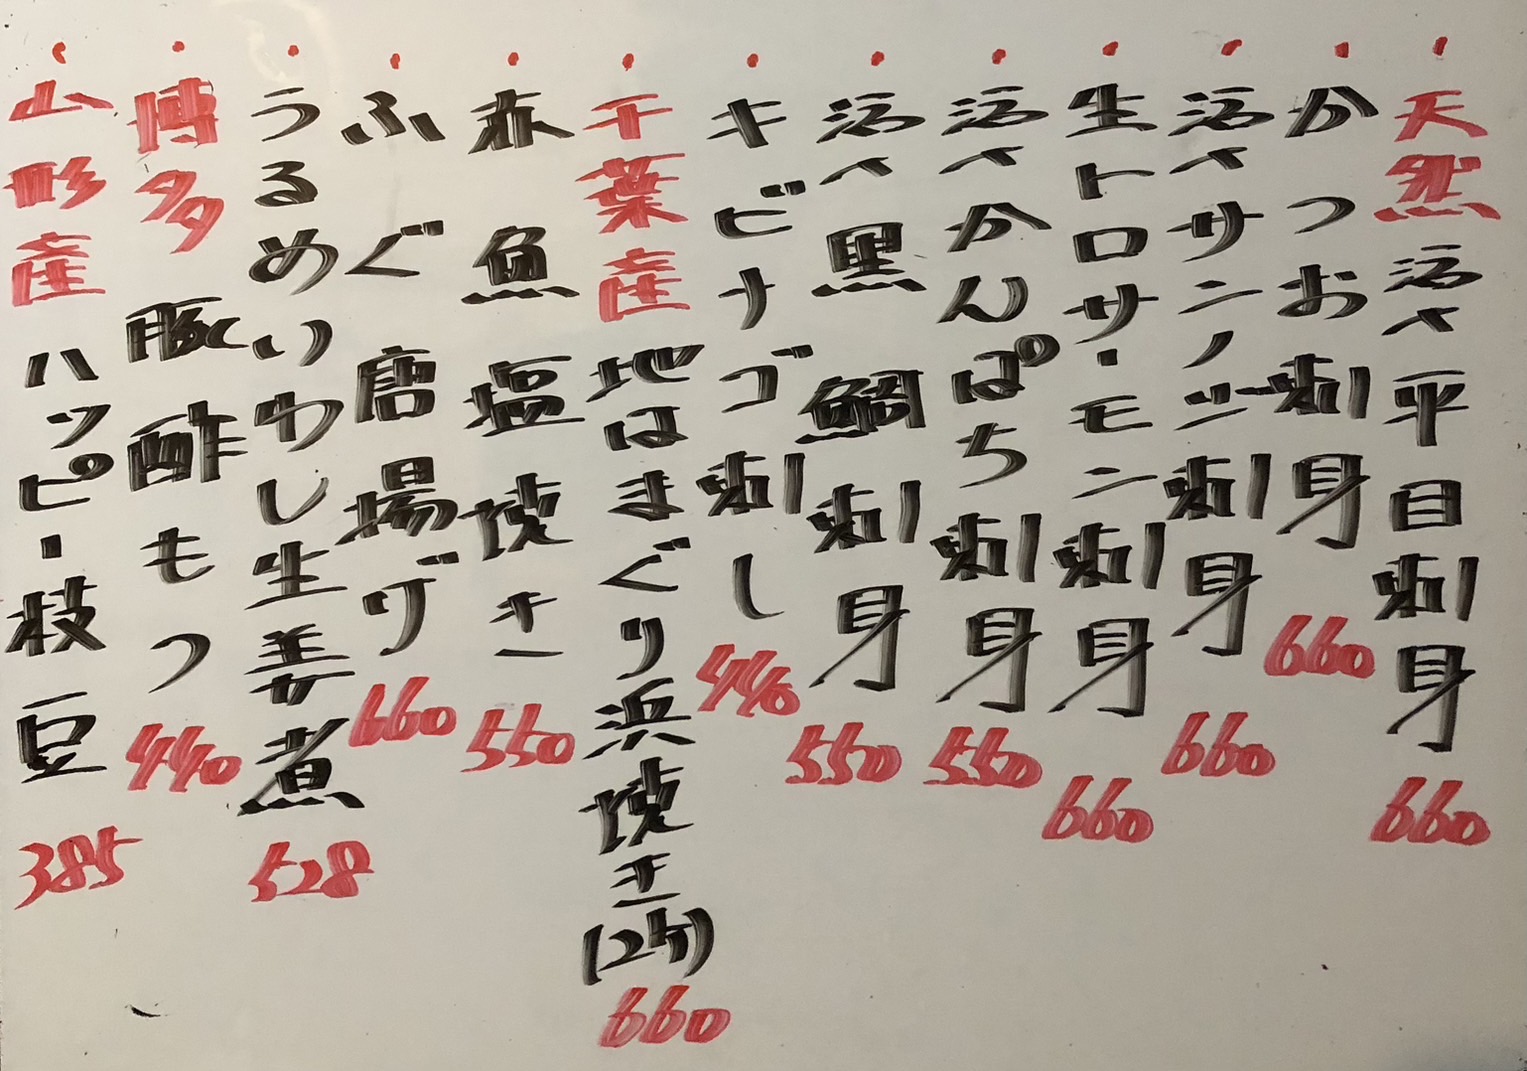 ・天然活〆平目刺身 660
・かつお刺身 660
・活〆サンノジ刺身 660
・生トロサーモン刺身 660
・活〆かんぱち刺身 550
・活〆黒鯛刺身 550
・キビナゴ刺し 440
・千葉産地はまぐり浜焼き(2ケ) 660
・赤魚塩焼き 550
・ふぐ唐揚げ 660
・うるめいわし生姜煮 528
・博多豚酢もつ 440
・山形産ハッピー枝豆 385